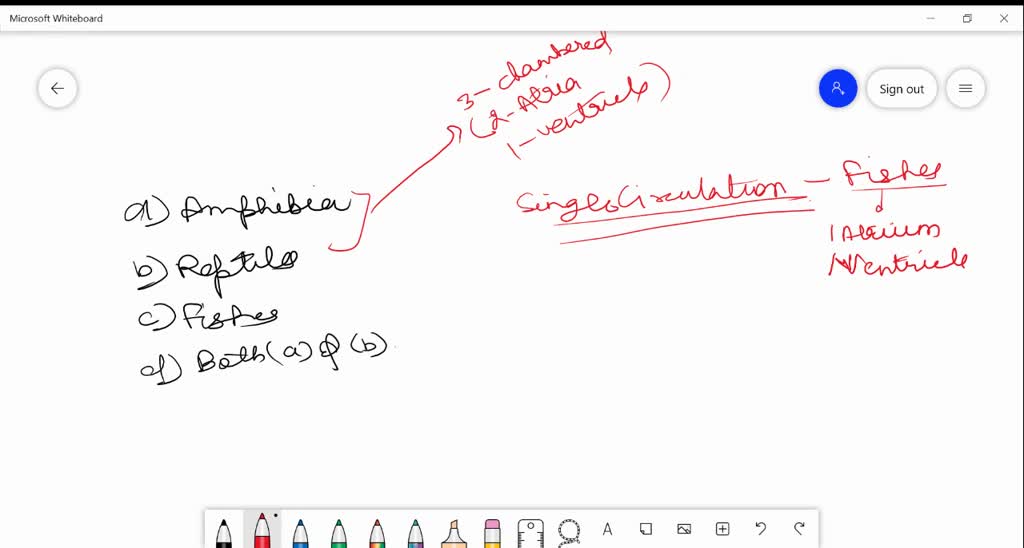 Microsoft Whiteboard
Sign out
3-chambered
(2-Atria
1-ventricle)
a) Amphibia
b) Reptiles
c) Fishes
d) Both (a) & (b)
Single Circulation - Fishes
1 Atrium
1 Ventricle
A